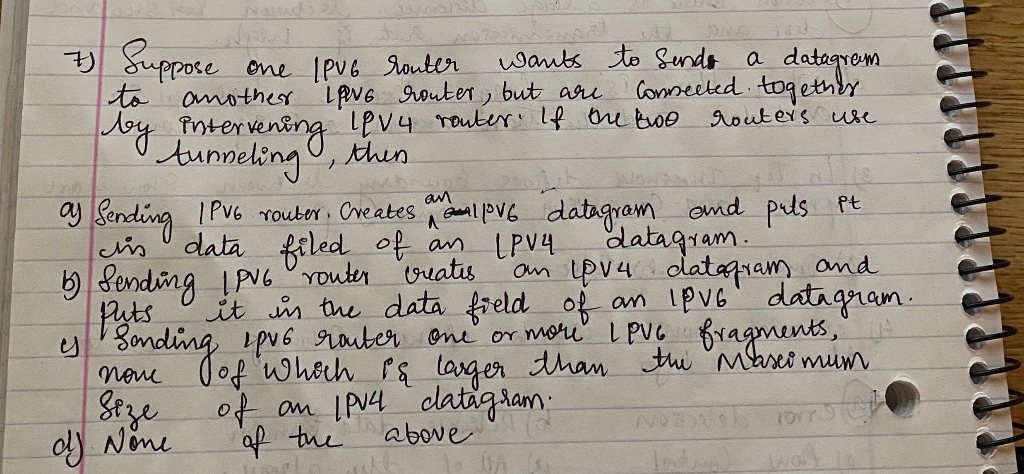 7) Suppose one IPV6 Router wants to Sends a datagram
to another IPV6 router, but are Connected together
by intervening IPV4 router. If the two routers use
tunneling, then
a) Sending IPV6 router. Creates an IPV6 datagram and puts it
in data filed of an IPV4 datagram.
b) Sending IPV6 router creates an IPV4 datagram and
Puts it in the data field of an IPV6 datagram.
c) Sending IPV6 router one or more IPV6 fragments,
none of which is larger than the Maximum
Size of an IPV4 datagram.
d) None of the above